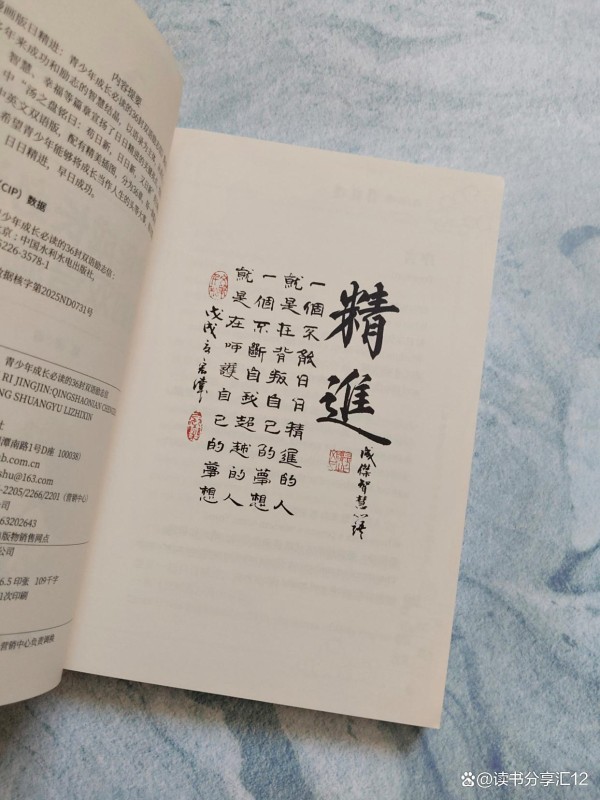 内容提要
漫画版日精进：青少年成长必读的36封双语励志
多年来成功和励志的智慧结晶，以书信为
智慧、幸福等篇章宣扬了日日精进的
中“汤之盘铭曰：苟日新，日日新，又日新
中英文双语版，配有精美插图，分为36
希望青少年能够将成长当作人生的头等大事
，日日精进，早日成功。
（CIP）数据
少年成长必读的36封双语励志信：
北京：中国水利水电出版社，
5226-3578-1
数据核字第2025ND0731号
青少年成长必读的36封双语励志信
RI JINGJIN:QINGSHAONIAN CHENGZH
NG SHUANGYU LIZHIXIN
社
潭南路1号D座 100038）
b.com.cn
shu@163.com
-2205/2266/2201（营销中心）
63202643
版物销售网点
公司
6.5 印张 109千字
1次印刷
营销中心负责调换
精進
成傑智慧心語
一個不敢日日精進的人
就是在背叛自己的夢想
一個不斷自我超越的人
就是在呵護自己的夢想
戊戌
@读书分享汇12